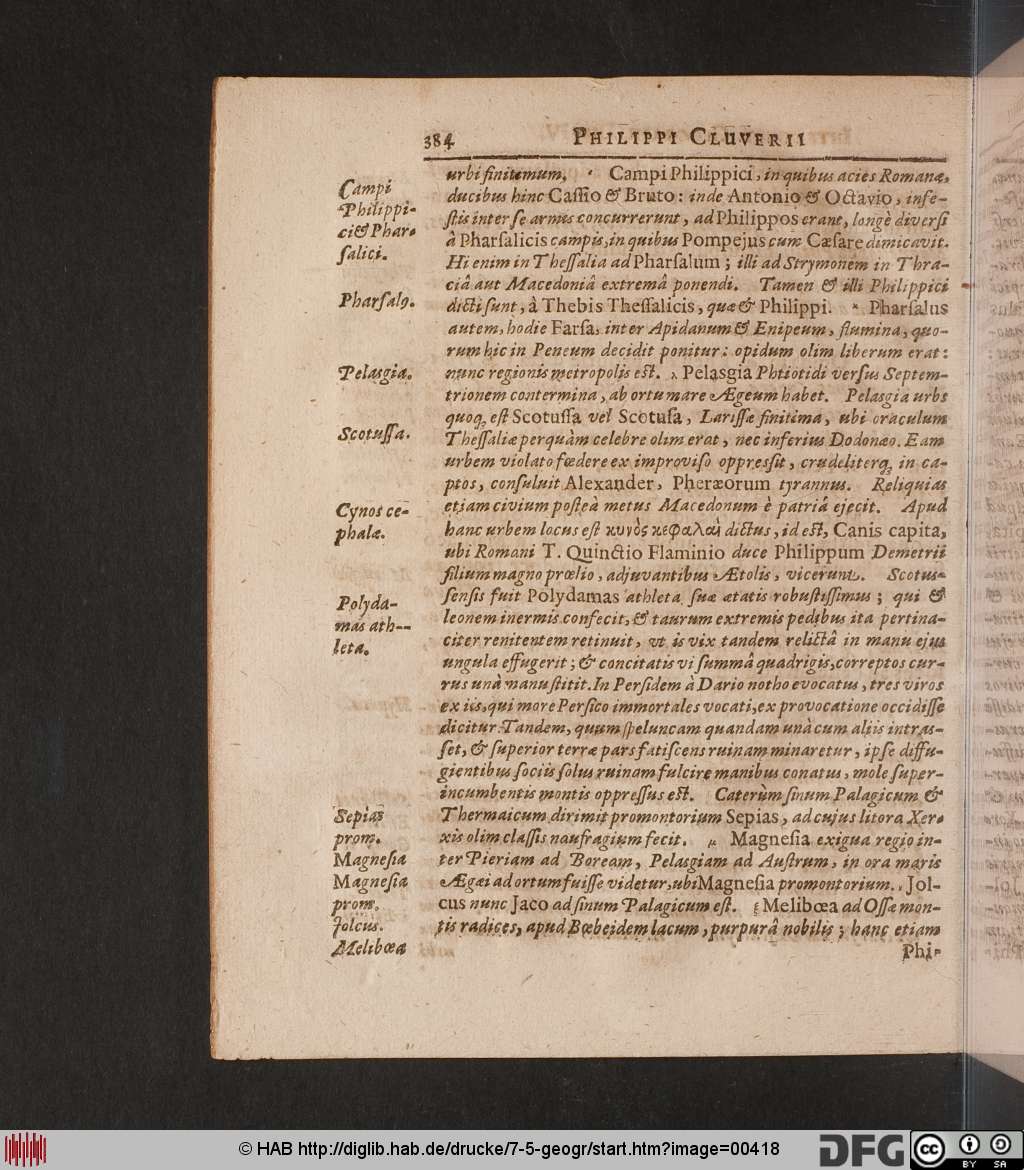 384 PHILIPPI CLUVERII
urbi finitimum. Campi Philippici, in quibus acies Romanæ,
ducibus hinc Cassio & Bruto: inde Antonio & Octavio, infe-
stis inter se armis concurrerunt, ad Philippos erant, longè diversi
à Pharsalicis campis, in quibus Pompejus cum Cæsare dimicavit.
Hi enim in Thessalia ad Pharsalum; illi ad Strymonem in Thra-
ciâ aut Macedoniâ extremâ ponendi. Tamen & illi Philippici
dicti sunt, à Thebis Thessalicis, quæ & Philippi. * Pharsalus
autem, hodie Farsa, inter Apidanum & Enipeum, flumina, quo-
rum hic in Peneum decidit ponitur: opidum olim liberum erat:
nunc regionis metropolis est. λ Pelasgia Phtiotidi versus Septem-
trionem contermina, ab ortu mare Ægeum habet. Pelasgia urbs
quoq; est Scotussa vel Scotusa, Larissæ finitima, ubi oraculum
Thessaliæ perquàm celebre olim erat, nec inferius Dodonæo. Eam
urbem violato fœdere ex improviso oppressit, crudeliterq; in ca-
ptos, consuluit Alexander, Pheræorum tyrannus. Reliquias
etiam civium posteà metus Macedonum è patriâ ejecit. Apud
hanc urbem locus est κυνὸς κεφαλαὶ dictus, id est, Canis capita,
ubi Romani T. Quinctio Flaminio duce Philippum Demetrii
filium magno prœlio, adjuvantibus Ætolis, vicerunt. Scotus-
sensis fuit Polydamas athleta suæ ætatis robustissimus; qui &
leonem inermis confecit, & taurum extremis pedibus ita pertina-
citer renitentem retinuit, ut is vix tandem relictâ in manu ejus
ungula effugerit; & concitatis vi summâ quadrigis, correptos cur-
rus unâ manu stitit. In Persidem à Dario notho evocatus, tres viros
ex iis, qui more Persico immortales vocati, ex provocatione occidisse
dicitur. Tandem, quum speluncam quandam unà cum aliis intras-
set, & superior terræ pars fatiscens ruinam minaretur, ipse diffu-
gientibus sociis solus ruinam fulcire manibus conatus, mole super-
incumbentis montis oppressus est. Caterùm sinum Palagicum &
Thermaicum dirimit promontorium Sepias, ad cujus litora Xer-
xis olim classis naufragium fecit. μ Magnesia exigua regio in-
ter Pieriam ad Boream, Pelasgiam ad Austrum, in ora maris
Ægæi ad ortum fuisse videtur, ubi Magnesia promontorium. Jol-
cus nunc Jaco ad sinum Palagicum est. Melibœa ad Ossæ mon-
tis radices, apud Bœbeidem lacum, purpurâ nobilis; hanc etiam
Phi-
Campi
Philippi-
ci & Phar-
salici.
Pharsalꝰ.
Pelasgia.
Scotussa.
Cynos ce-
phalæ.
Polyda-
mas ath-
leta.
Sepias
prom.
Magnesia
Magnesia
prom.
Jolcus.
Melibœa
© HAB http://diglib.hab.de/drucke/7-5-geogr/start.htm?image=00418
DFG
cc
BY SA